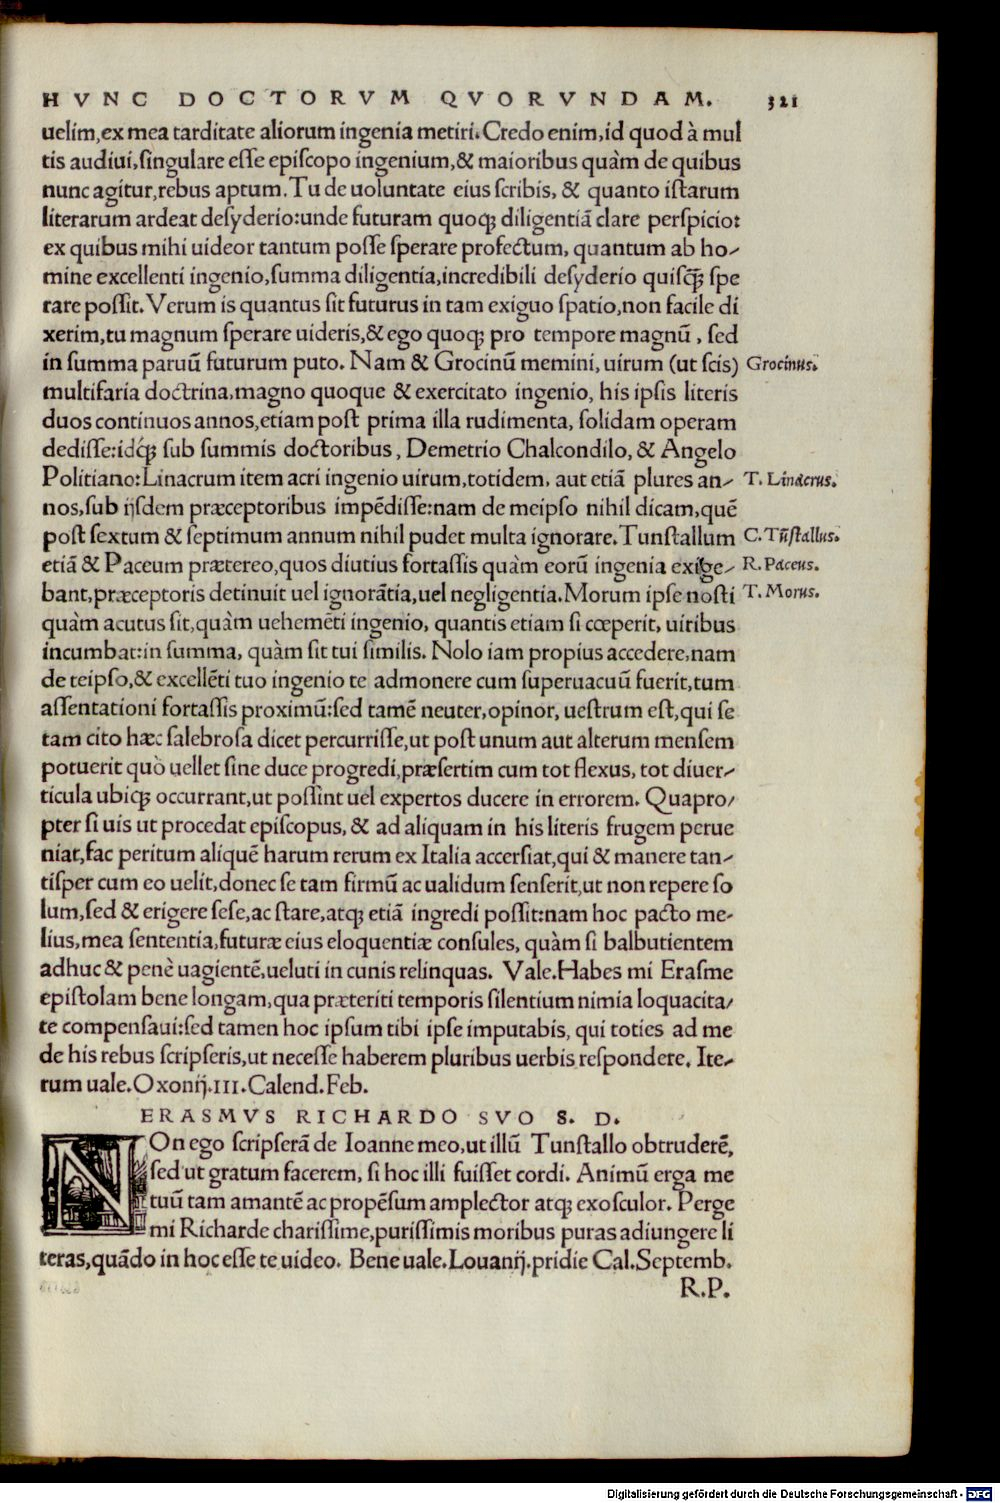 HVNC DOCTORVM QVORVNDAM. 321
uelim,ex mea tarditate aliorum ingenia metiri.Credo enim,id quod à mul
tis audiui,singulare esse episcopo ingenium,& maioribus quàm de quibus
nunc agitur,rebus aptum.Tu de uoluntate eius scribis, & quanto istarum
literarum ardeat desyderio:unde futuram quoqꝫ diligentiã clare perspicio:
ex quibus mihi uideor tantum posse sperare profectum, quantum ab ho-
mine excellenti ingenio,summa diligentia,incredibili desyderio quisq̃ꝫ spe
rare possit.Verum is quantus sit futurus in tam exiguo spatio,non facile di
xerim,tu magnum sperare uideris,& ego quoqꝫ pro tempore magnũ, sed
in summa paruũ futurum puto. Nam & Grocinũ memini, uirum (ut scis) Grocinus.
multifaria doctrina,magno quoque & exercitato ingenio, his ipsis literis
duos continuos annos,etiam post prima illa rudimenta, solidam operam
dedisse:idq́ꝫ sub summis doctoribus, Demetrio Chalcondilo, & Angelo
Politiano:Linacrum item acri ingenio uirum,totidem, aut etiã plures an- T. Linacrus.
nos,sub ijsdem præceptoribus impẽdisse:nam de meipso nihil dicam,quẽ
post sextum & septimum annum nihil pudet multa ignorare.Tunstallum C. Tũstallus.
etiã & Paceum prætereo,quos diutius fortassis quàm eorũ ingenia exige- R. Paceus.
bant,præceptoris detinuit uel ignorãtia,uel negligentia.Morum ipse nosti T. Morus.
quàm acutus sit,quàm uehemẽti ingenio, quantis etiam si cœperit, uiribus
incumbat:in summa, quàm sit tui similis. Nolo iam propius accedere,nam
de teipso,& excellẽti tuo ingenio te admonere cum superuacuũ fuerit,tum
assentationi fortassis proximũ:sed tamẽ neuter,opinor, uestrum est,qui se
tam cito hæc salebrosa dicet percurrisse,ut post unum aut alterum mensem
potuerit quò uellet sine duce progredi,præsertim cum tot flexus, tot diuer-
ticula ubiqꝫ occurrant,ut possint uel expertos ducere in errorem. Quapro-
pter si uis ut procedat episcopus, & ad aliquam in his literis frugem perue
niat,fac peritum aliquẽ harum rerum ex Italia accersiat,qui & manere tan-
tisper cum eo uelit,donec se tam firmũ ac ualidum senserit,ut non repere so
lum,sed & erigere sese,ac stare,atqꝫ etiã ingredi possit:nam hoc pacto me-
lius,mea sententia,futuræ eius eloquentiæ consules, quàm si balbutientem
adhuc & penè uagientẽ,ueluti in cunis relinquas. Vale.Habes mi Erasme
epistolam bene longam,qua præteriti temporis silentium nimia loquacita-
te compensaui:sed tamen hoc ipsum tibi ipse imputabis, qui toties ad me
de his rebus scripseris,ut necesse haberem pluribus uerbis respondere. Ite-
rum uale.Oxonij.III.Calend.Feb.
ERASMVS RICHARDO SVO S. D.
NOn ego scripserã de Ioanne meo,ut illũ Tunstallo obtruderẽ,
sed ut gratum facerem, si hoc illi fuisset cordi. Animũ erga me
tuũ tam amantẽ ac propẽsum amplector atqꝫ exosculor. Perge
mi Richarde charissime,purissimis moribus puras adiungere li
teras,quãdo in hoc esse te uideo. Bene uale.Louanij.pridie Cal.Septemb.
R.P.
Digitalisierung gefördert durch die Deutsche Forschungsgemeinschaft - DFG